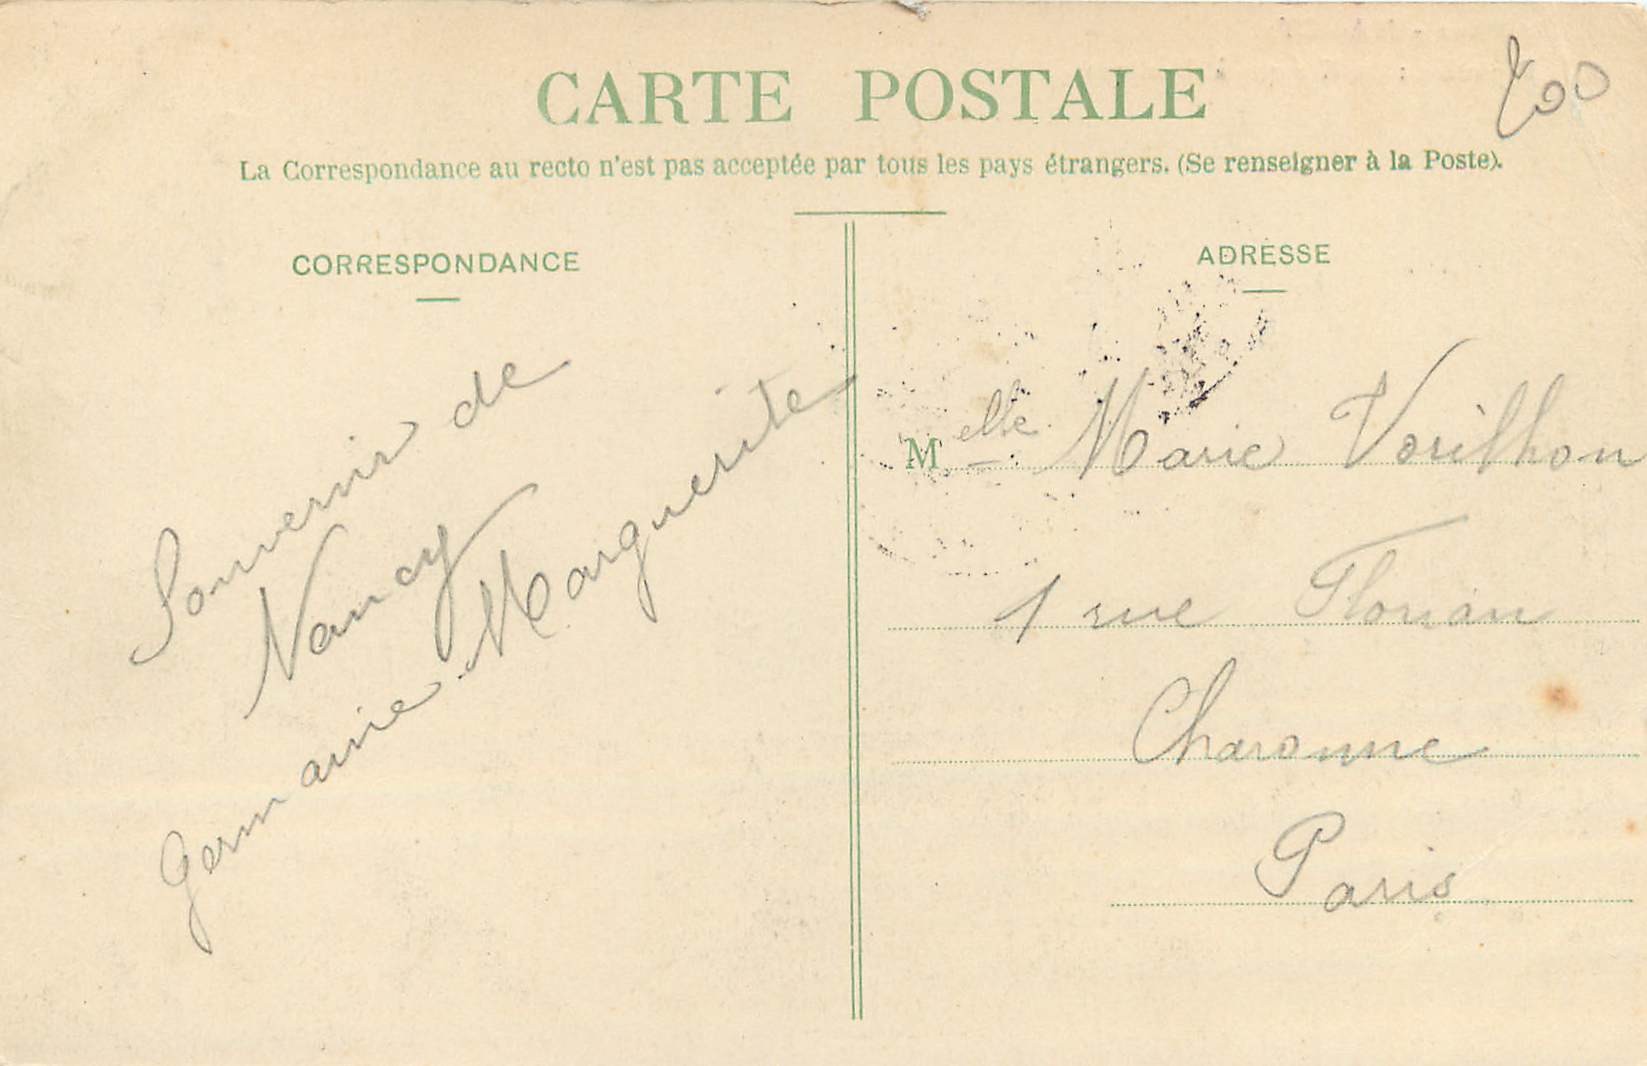 CARTE POSTALE
La Correspondance au recto n'est pas acceptée par tous les pays étrangers. (Se renseigner à la Poste).
CORRESPONDANCE
Souvenir de
Nancy
Germaine Marguerite
ADRESSE
Melle Marie Vorilhon
1 rue Florian
Charonne
Paris